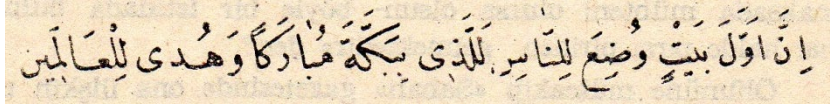 اِنَّ اَوَّلَ بَيْتٍ وُضِعَ لِلنَّاسِ لَلَّذٖى بِبَكَّةَ مُبَارَكًا وَهُدى لِلْعَالَمٖين